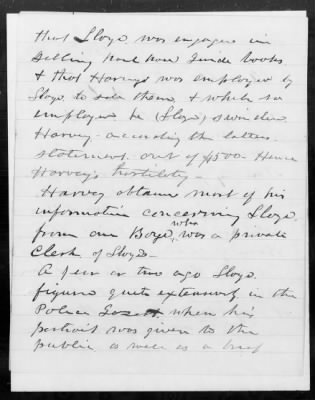 that Lloyd was engaged in
selling rail road Guide books
& that Harvey was employed by
Lloyd to sell them, & while so
employed he (Lloyd) swindled
Harvey - according the latters
statement. out of $500 - Hence
Harvey's hostility -
Harvey obtained most of his
information concerning Lloyd
from one Boyd, who was a private
Clerk of Lloyd -
A year or two ago Lloyd
figured quite extensively in the
Police Gazett. when his
portrait was given to the
public as well as a brief